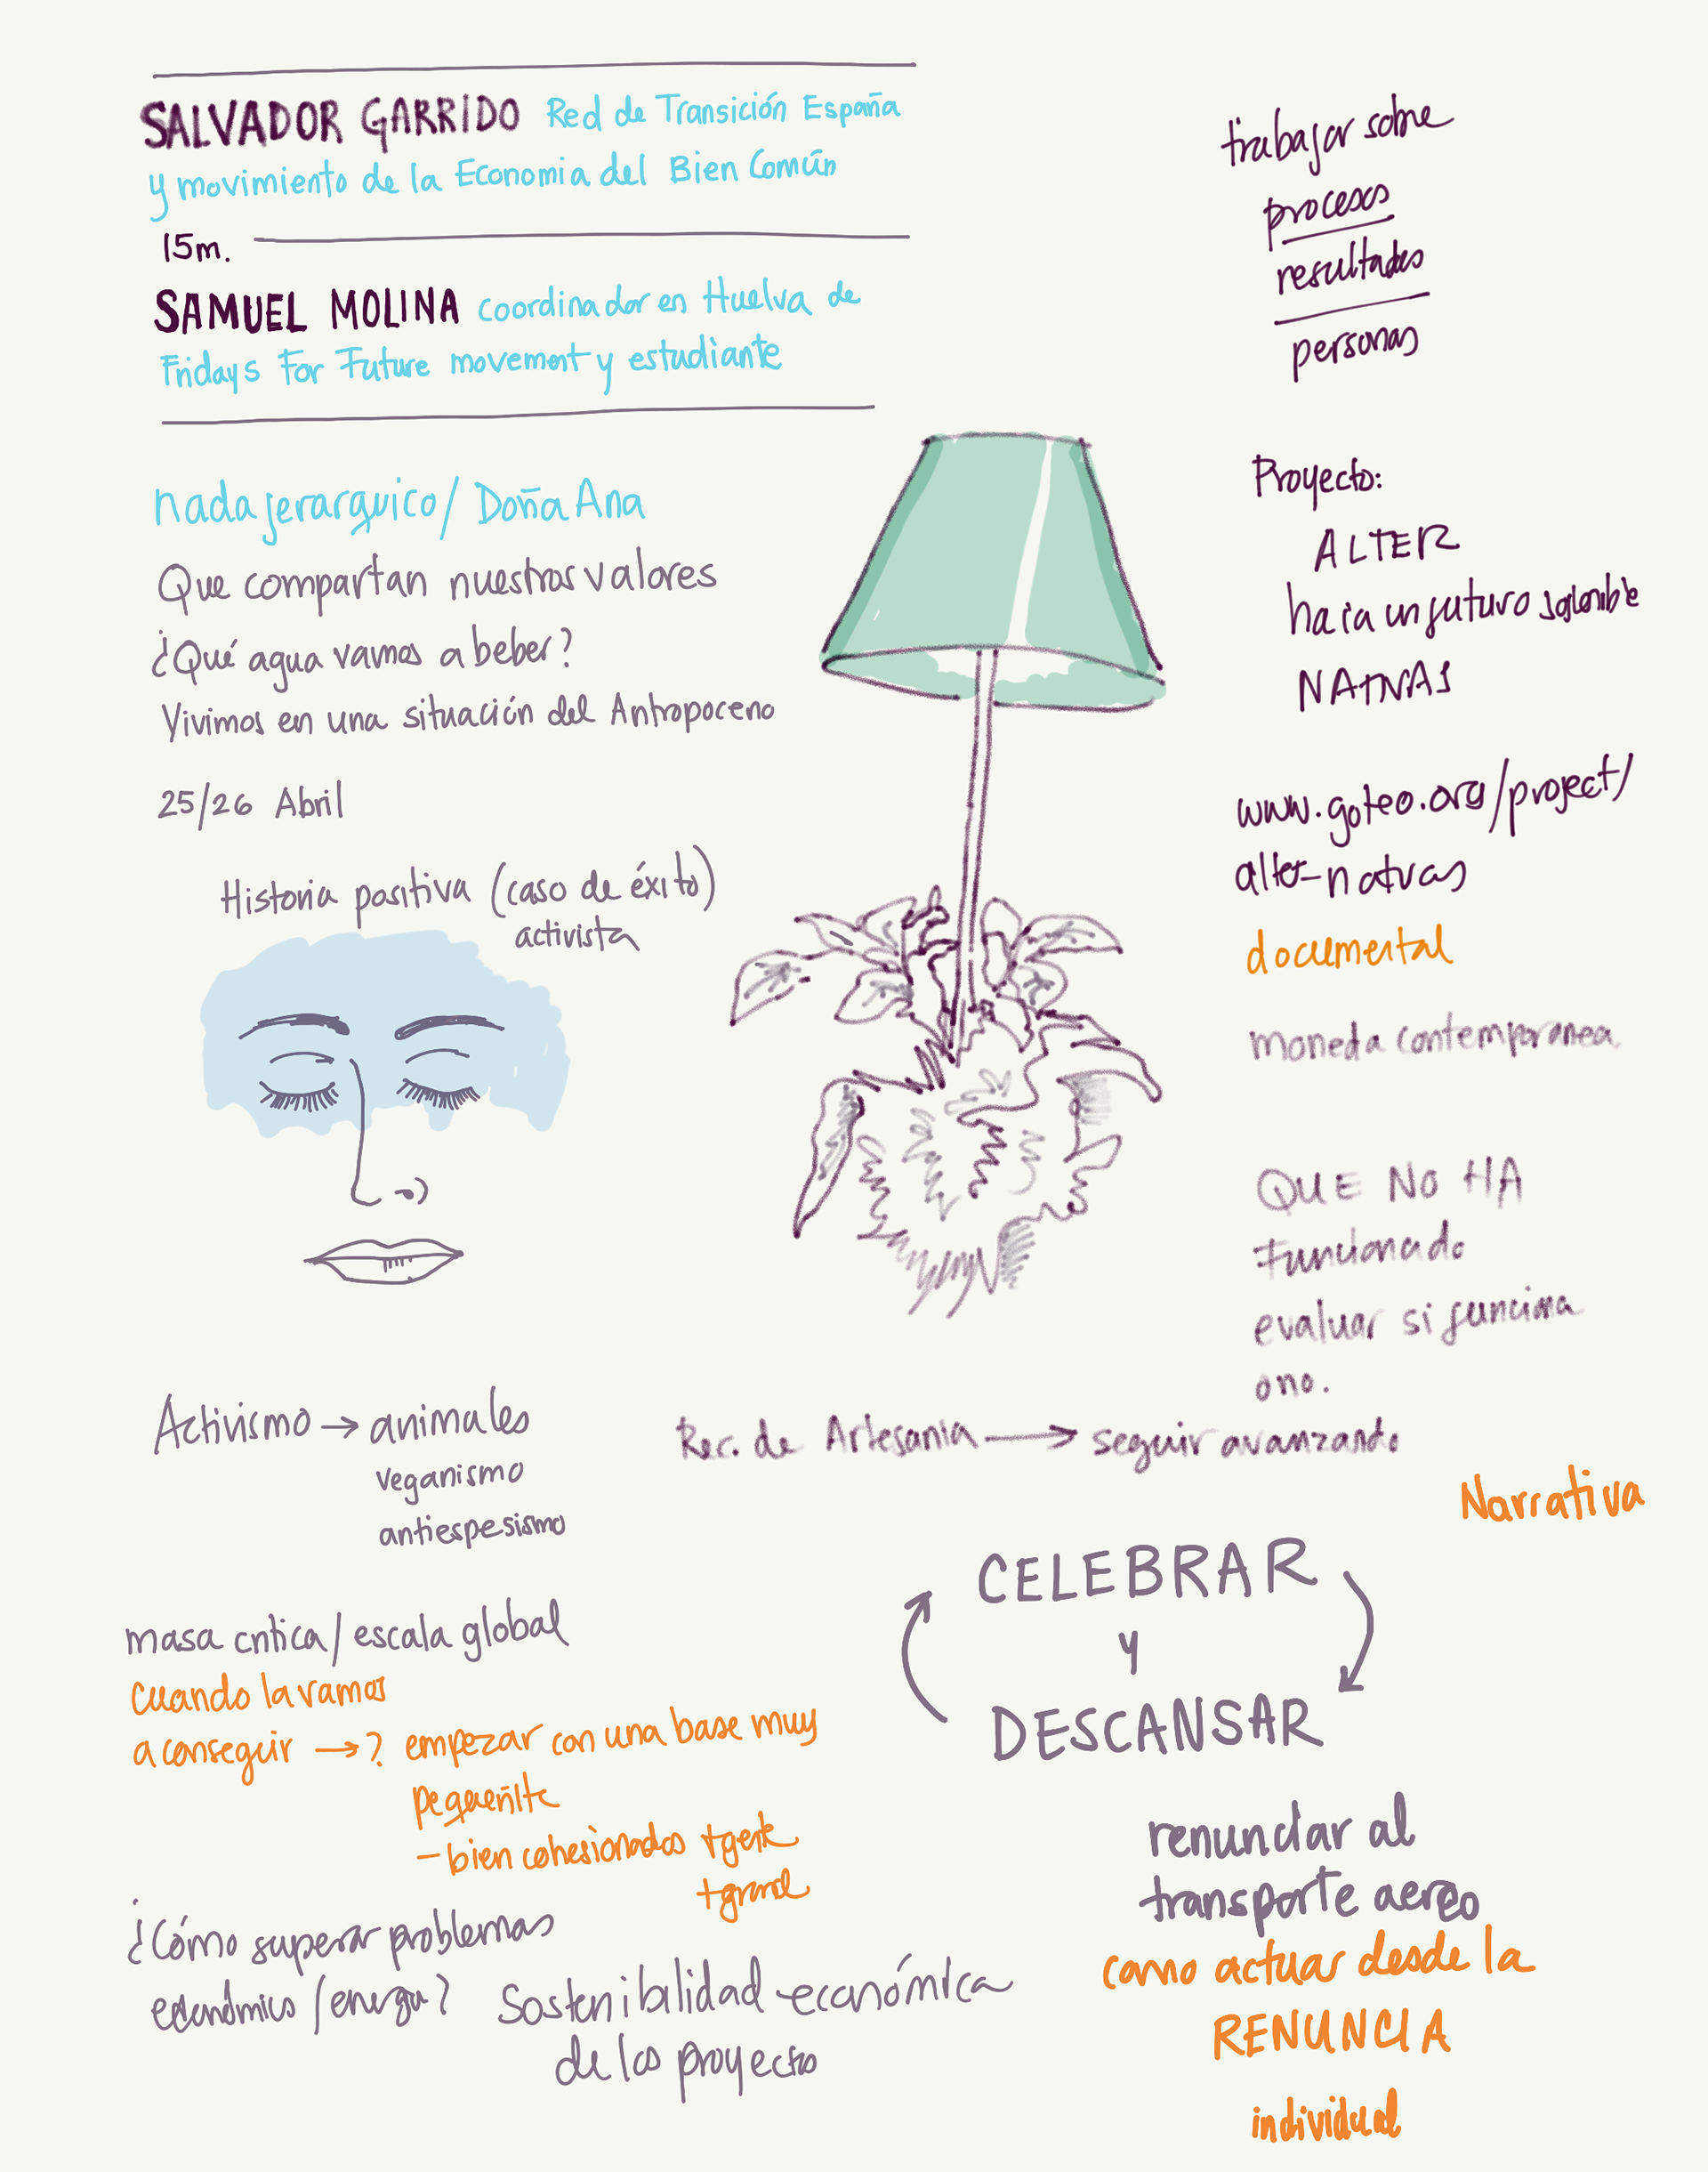 SALVADOR GARRIDO Red de Transición España
y movimiento de la Economia del Bien Común
15m.
SAMUEL MOLINA coordinador en Huelva de
Fridays For Future movement y estudiante
nada jerarquico / Doña Ana
Que compartan nuestros valores
¿Qué agua vamos a beber?
Vivimos en una situación del Antropoceno
25/26 Abril
Historia positiva (caso de éxito)
activista
Activismo → animales
veganismo
antiespesismo
masa crítica / escala global
cuando la vamos
a conseguir → ? empezar con una base muy
pequeñita
- bien cohesionados + gente
+ grande
¿Cómo superar problemas
económicos / energía?
Sostenibilidad económica
de los proyectos
trabajar sobre
procesos
resultados
personas
Proyecto:
ALTER
hacia un futuro sostenible
NATIVAS
www.goteo.org/project/
alter-nativas
documental
moneda contemporanea
QUE NO HA
Funcionado
evaluar si funciona
o no.
Rec. de Artesania → seguir avanzando
Narrativa
CELEBRAR
y
DESCANSAR
renunciar al
transporte aereo
como actuar desde la
RENUNCIA
individual